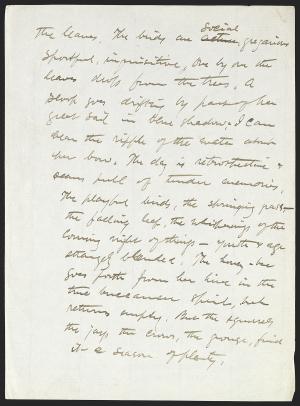 the leaves. The birds are social active, gregarious
sportful, inquisitive, One by one the
leaves drop from the trees. A
sloop goes drifting by part of her
great sail in blue shadow; I can
hear the ripple of the water about
her bow. The day is retrospective &
seems full of tender memories.
The playful birds, the springing grass—
the falling leaf, the whisperings of the
coming night of things — youth & age
strangely blended. The honey-bee
goes forth from her hive in the
true buccaneer spirit, but
returns empty. But the squirrels
the jays the crows, the grouse, find
it a season of plenty.